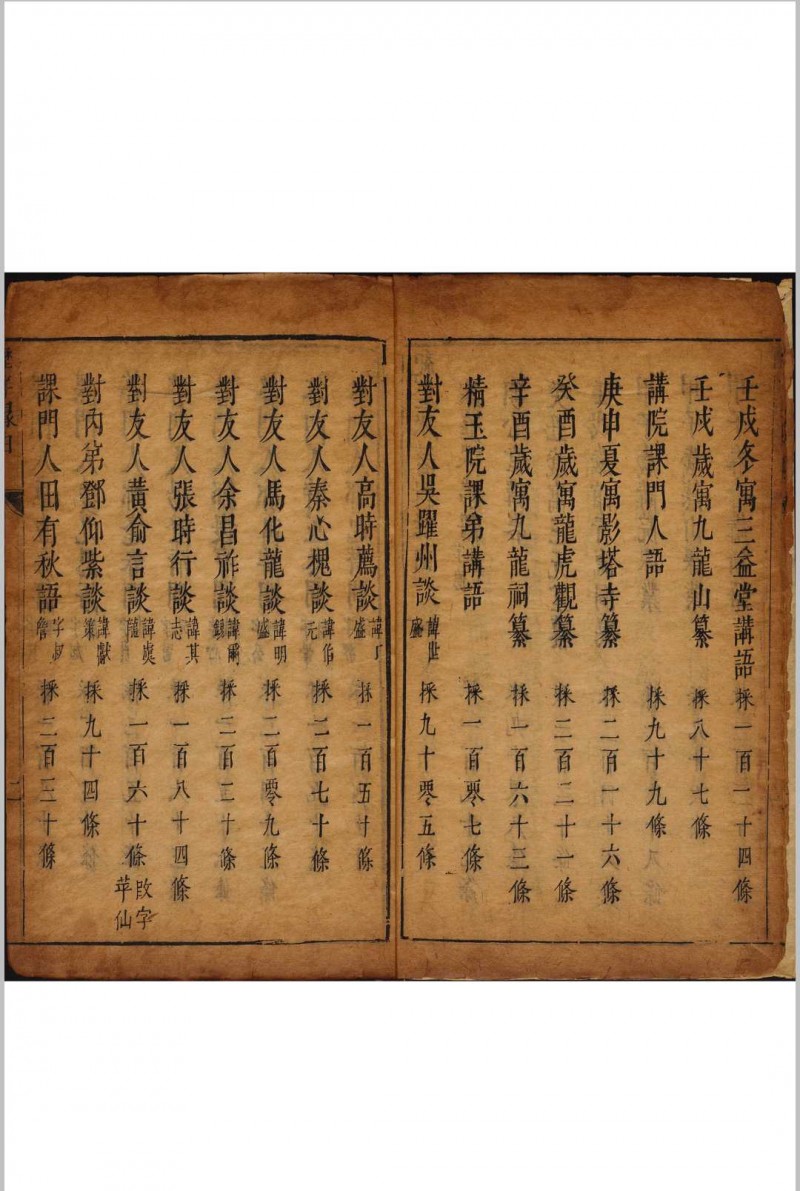 壬戌冬寓三益堂講語採一百一十四條
壬戌歲寓九龍山纂採八十七條
講院課門人語採九十九條
庚申夏寓影塔寺纂採二百一十六條
癸酉歲寓龍虎觀纂採二百二十一條
辛酉歲寓九龍祠纂採一百六十三條
精玉院課弟講語採一百零七條
對友人吳躍州談諱世盛採九十零五條
對友人高時薦談盛採一百五十條
對友人秦心槐談諱伯元採二百七十條
對友人馬化龍談諱明盛採二百零九條
對友人余昌祚談諱爾錫採二百二十條
對友人張時行談諱其志採一百八十四條
對友人黃俞言談諱虞採一百六十條改字苹仙
對內弟鄧仰紫談諱獻策採九十四條
課門人田有秋語字叔採二百三十條
二